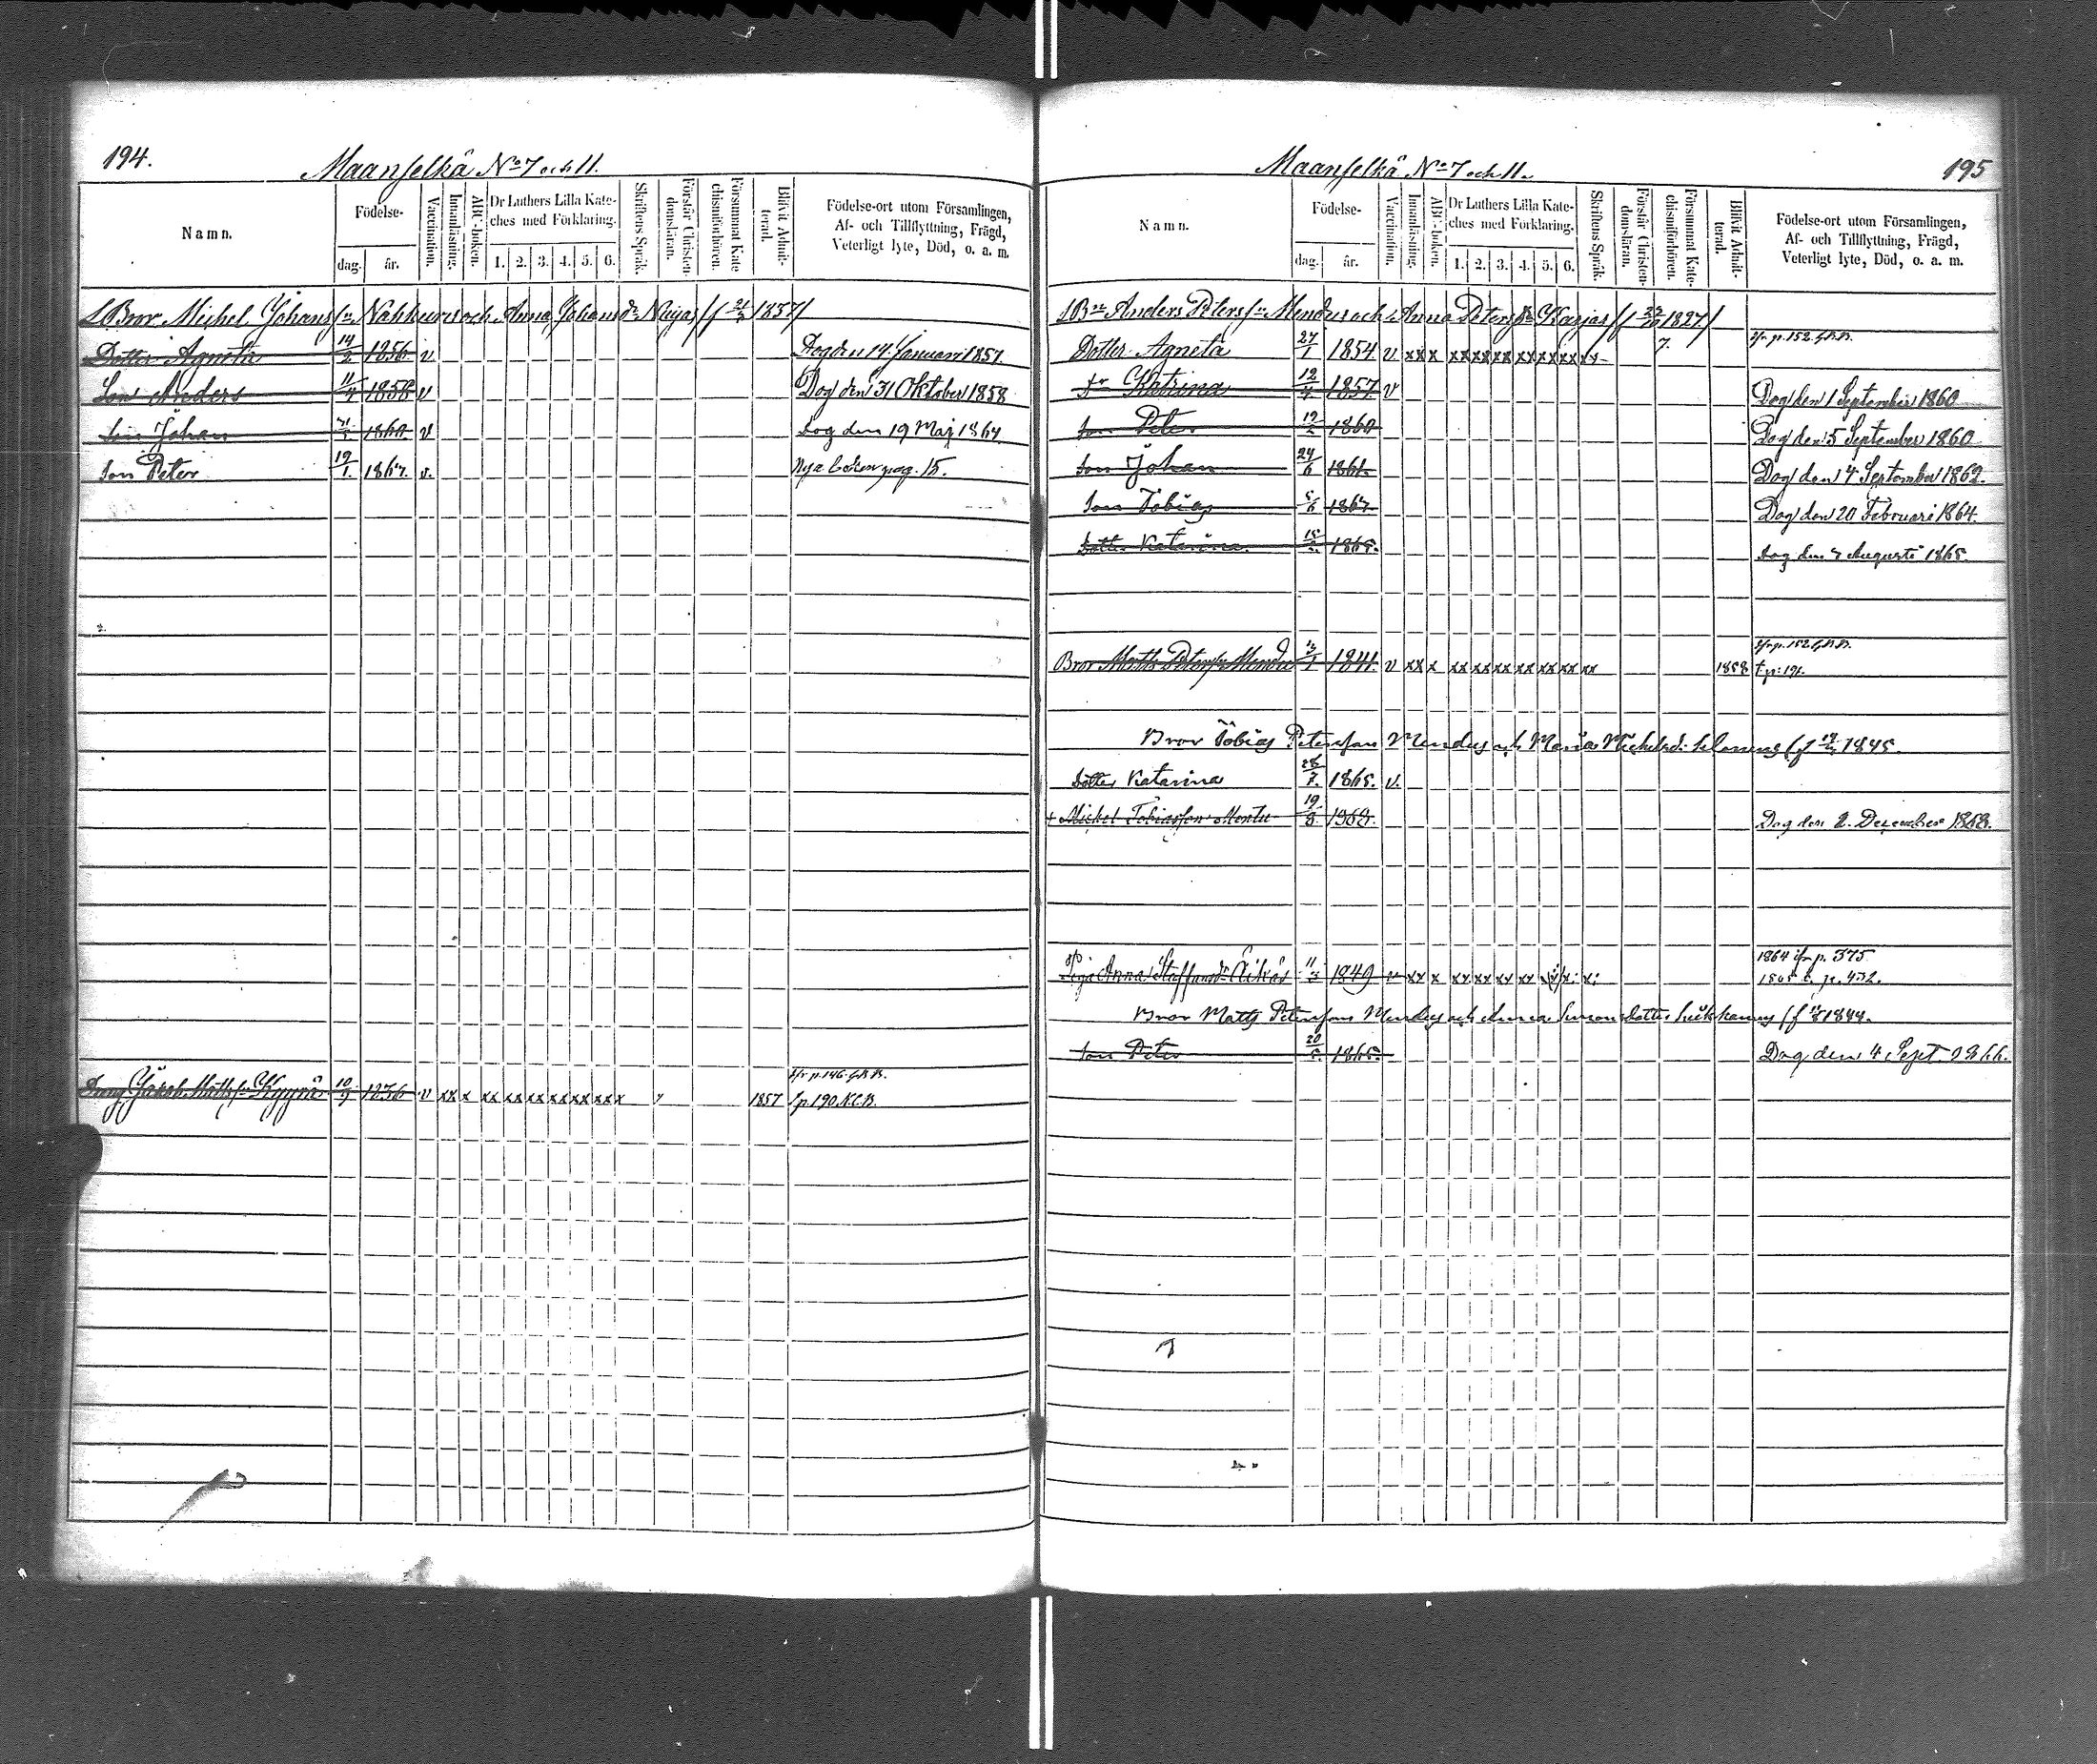 194.
Maanselkä No 7 och 11.
Namn.
Födelse-
dag.
år.
Vaccination.
Innanläsning.
ABC-boken.
Dr Luthers Lilla Kate-
ches med Förklaring.
1. 2. 3. 4. 5. 6.
Skriftens Språk.
Förstår Christen-
domsläran.
Försummat Kate
chismiförhören.
Blifvit Admit-
terad.
Födelse-ort utom Församlingen,
Af- och Tillflyttning, Frägd,
Veterligt lyte, Död, o. a. m.
Bror Michel Johans Nahkuris och Anna Johans dr 1837
Dotter Agneta 14/2 1856 v Dog den 14 Januari 1857
Son Anders 11/4 1858 v Dog den 31 Oktober 1858
Son Johan 1860 v Dog den 19 Maj 1864
Son Peter 19/1. 1867. v. Nya boken pag. 15.
Dräng Jakob Matts 10/9 1836 v xx x xx xx xx xx xx xx x 1857 fr p. 146
p. 190.
195
Maanselkä No 7 och 11.
Namn.
Födelse-
dag.
år.
Vaccination.
Innanläsning.
ABC-boken.
Dr Luthers Lilla Kate-
ches med Förklaring.
1. 2. 3. 4. 5. 6.
Skriftens Språk.
Förstår Christen-
domsläran.
Försummat Kate-
chismiförhören.
Blifvit Admit-
terad.
Födelse-ort utom Församlingen,
Af- och Tillflyttning, Frägd,
Veterligt lyte, Död, o. a. m.
Anders Peters Mendu och Anna Peters dr Karjas 22/10 1827
Dotter Agneta 27/1 1854 v xx x xx xx xx xx xx xx xx 7. p. 152
dr Katrina 12/4 1857 v Dog den 1 September 1860
Son Peter 19/2 1860 Dog den 5 September 1860
Son Johan 24/6 1861. Dog den 4 September 1862.
Son Tobias 5/6 1863. Dog den 20 Februari 1864.
Dotter Katarina 1865. Dog den 7 Augusti 1865.
Bror Matts Peters Mendu 1841. v xx x xx xx xx xx xx xx xx 1858 p. 152
Bror Tobias Peterson Mendu och Maria Michelsdr 1845.
Dotter Katarina 28/7. 1865. v.
+ Michel Tobiasson 19/8. 1868. Dog den 2. December 1868.
Piga Anna Staffansdr 1849 v xx x xx xx xx xx 1864 ifr p. 375
1865 p. 432.
Bror Matts Peterson Mendu och Anna Simonsdotter 1844.
Son Peter 20/5. 1865. Dog den 4 Sept. 1866.